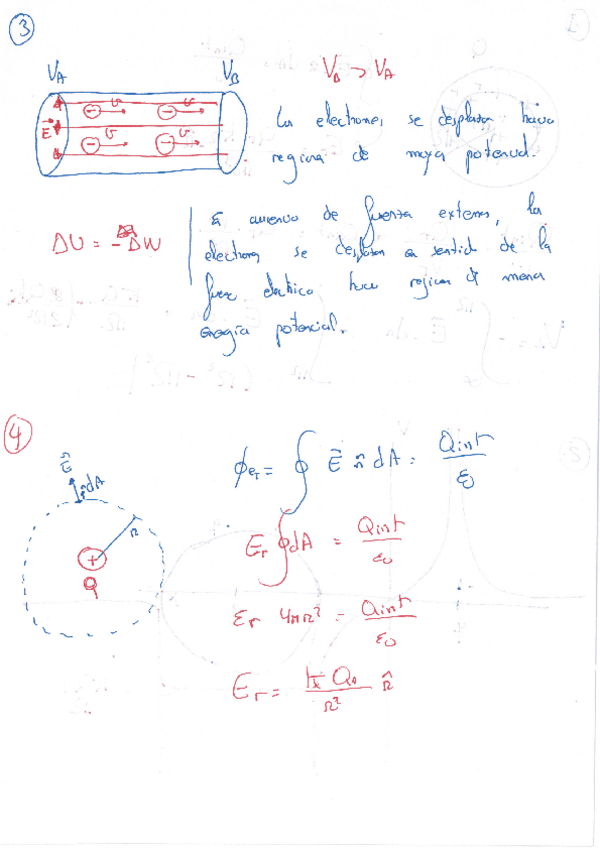 ③
V_A V_B V_B > V_A
E⃗ ⊖ v ⊖ v
⊖ v ⊖ v
Los electrones se desplazan hacia
regiones de mayor potencial.
ΔU = -ΔW
de fuerza externa, los
electrones se desplazan en sentido de la
fuerza electrica hacia regiones de menor
energía potencial.
④
E⃗
n̂dA
r
+
q
ϕ_e = ∮ E⃗ n̂ dA = Qint/ε₀
E_r ∮ dA = Qint/ε₀
E_r 4πr² = Qint/ε₀
E_r = r̂
r²